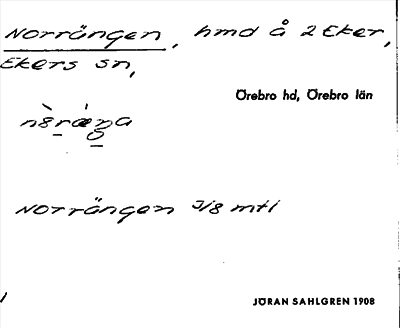 Norrängen, hmd å 2 Eker,
Ekers sn,
Örebro hd, Örebro län
Norrängen 3/8 mtl
JÖRAN SAHLGREN 1908